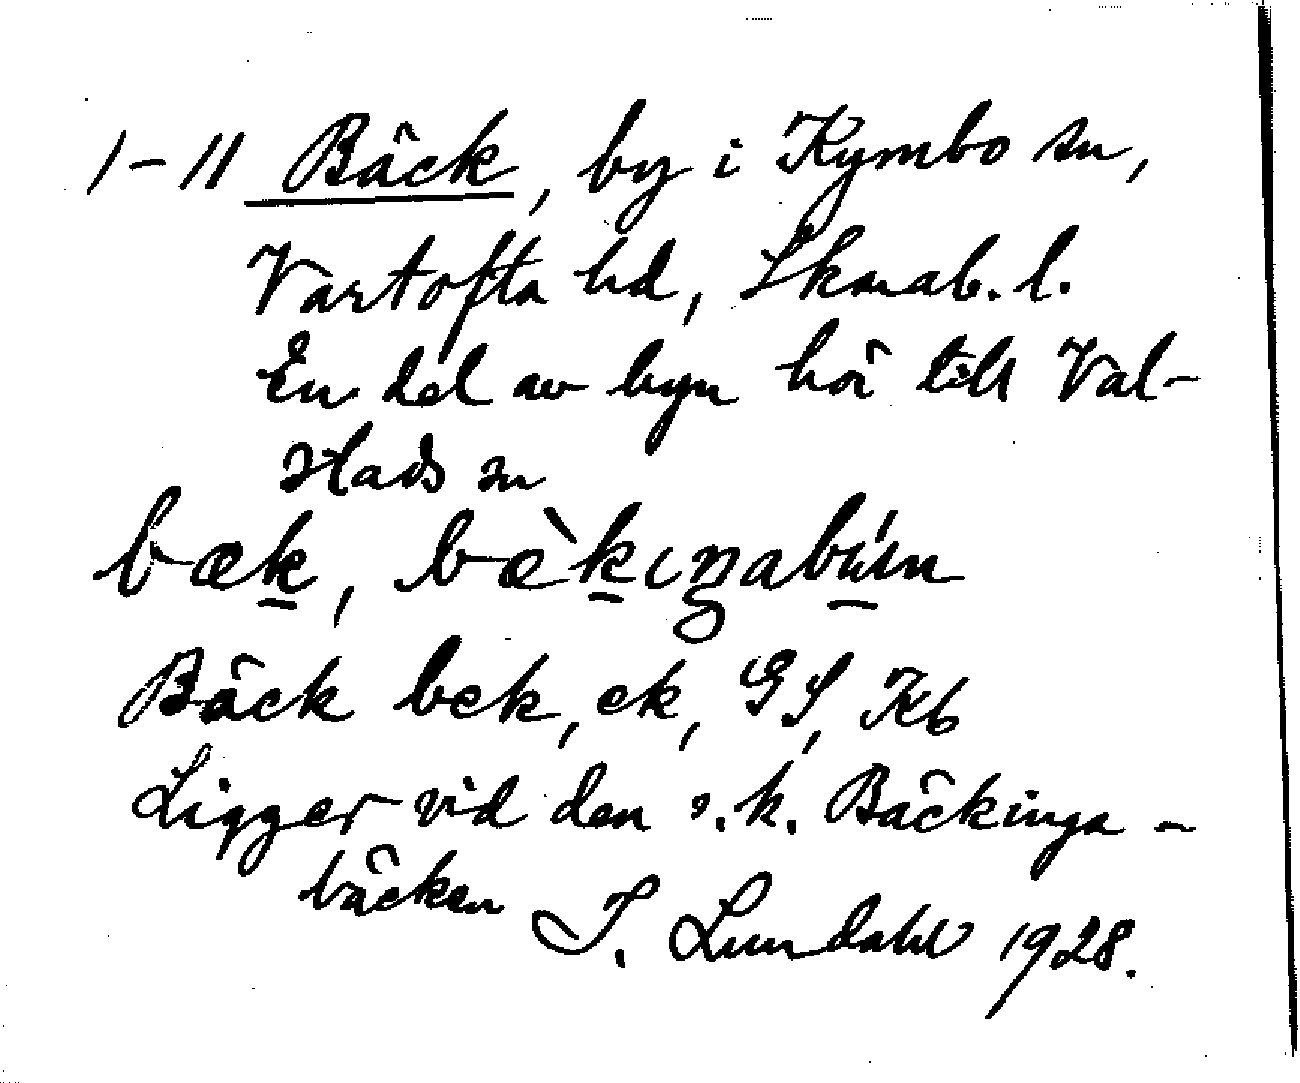 1-11 Bäck, by i Kymbo sn,
Vartofta hd, Skarab. l.
En del av byn hör till Val-
stads sn
bæk, bæ̀kıŋabúın
Bäck bek, ek, GS, Kb
Ligger vid den s.k. Bäckinga-
bäcken I. Lundahl 1928.